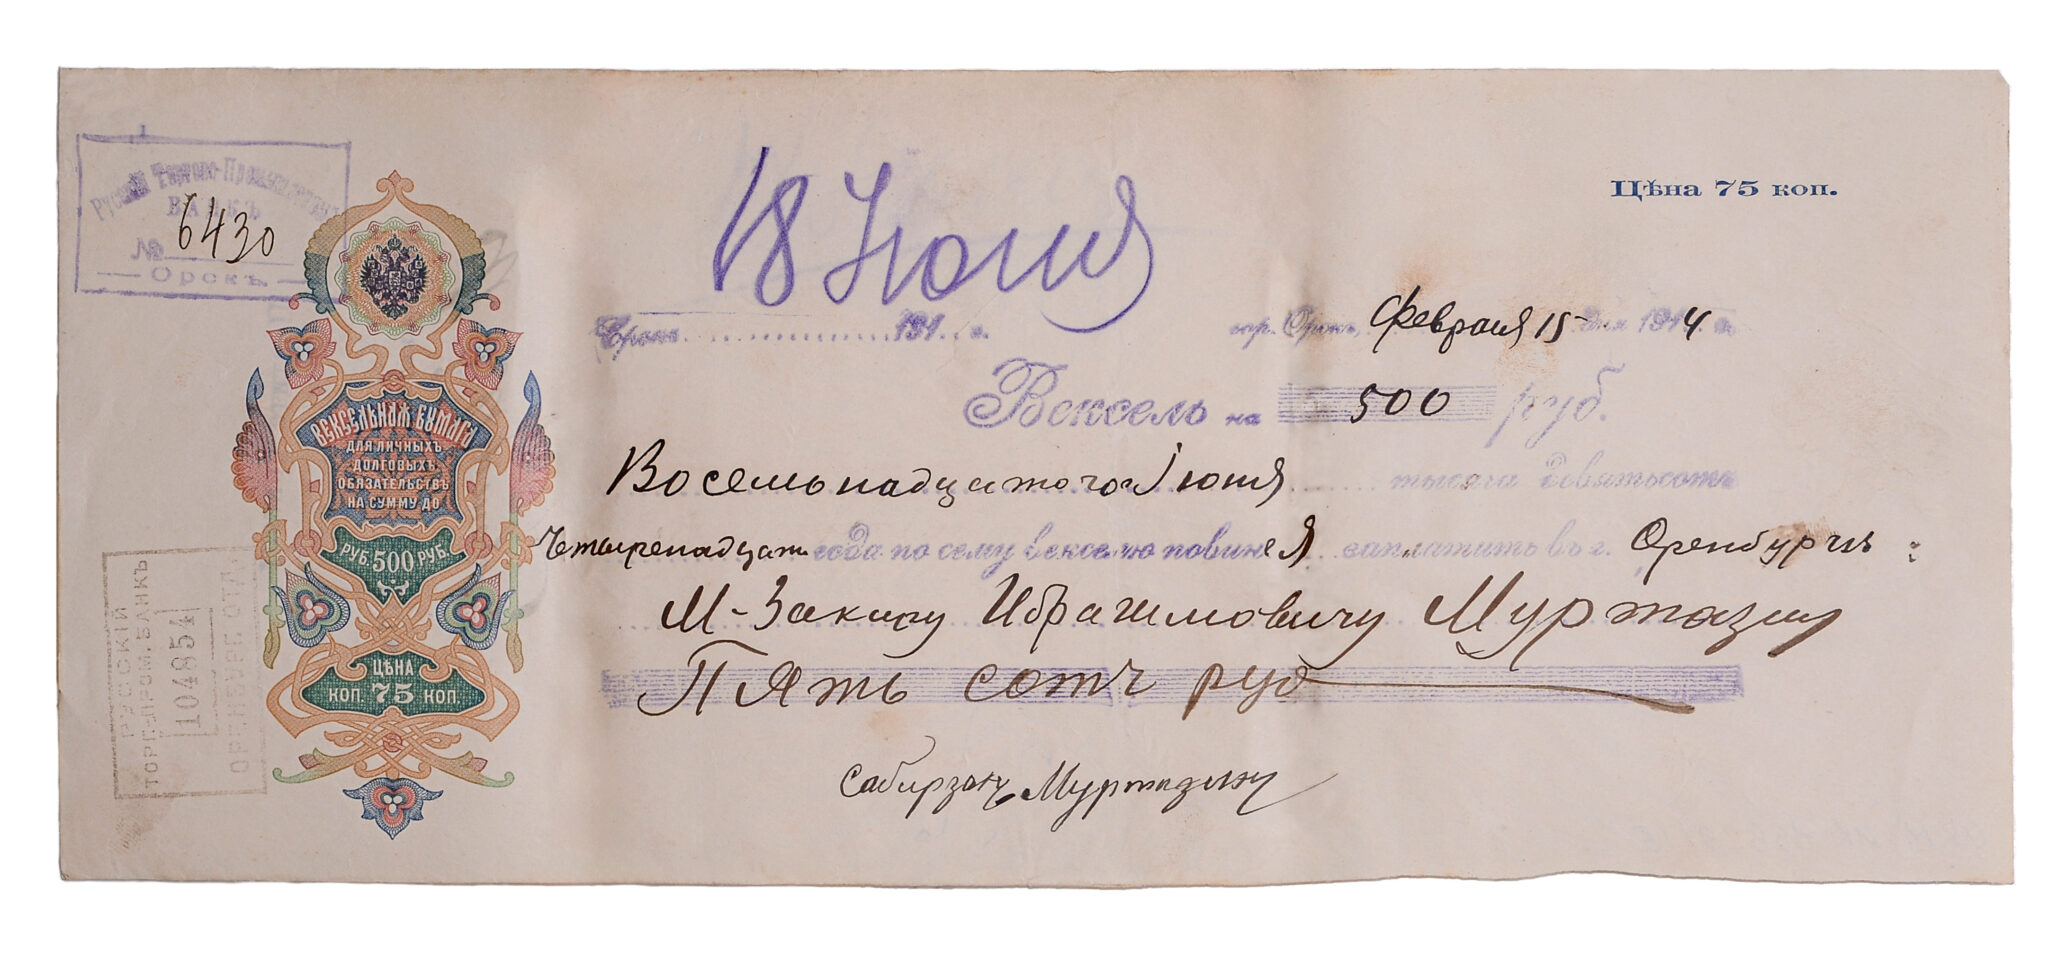 Русскій Торгово-Промышленный
БАНКЪ
№ 6430
Орскъ
18 Июня
Цѣна 75 коп.
Срокъ 191 г.
гор. Орскъ, Февраля 15 дня 1914 г.
Вексель на 500 руб.
ВЕКСЕЛЬНАЯ БУМАГА
ДЛЯ ЛИЧНЫХЪ
ДОЛГОВЫХЪ
ОБЯЗАТЕЛЬСТВЪ
НА СУММУ ДО
РУБ. 500 РУБ.
ЦѢНА
КОП. 75 КОП.
Восемьнадцатого Июня тысяча девятьсотъ
Четыренадцать года по сему векселю повиненъ Я заплатить въ г. Оренбургѣ
М-Закиру Ибрагимовичу Муртазину
Пять сотъ руб
Сабирзянъ Муртазинъ
РУССКІЙ
ТОРГ.-ПРОМ. БАНКЪ
104854